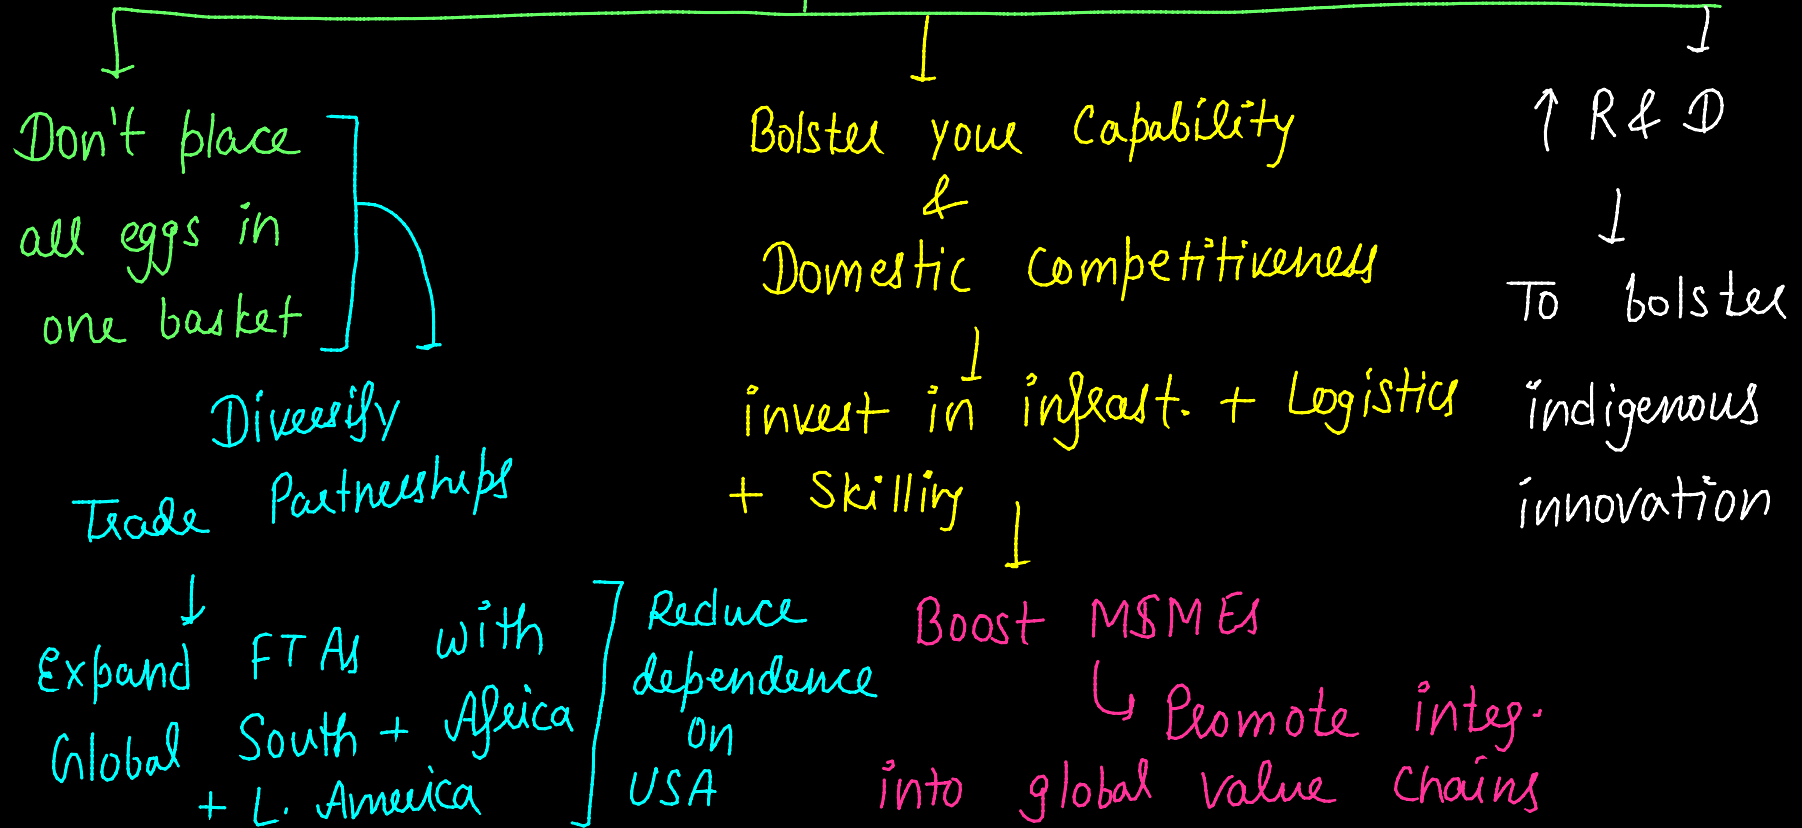 Don't place
all eggs in
one basket
Diversify
Trade Partnerships
Expand FTAs with
Global South + Africa
+ L. America
Reduce
dependence
on
USA
Bolster your Capability
&
Domestic Competitiveness
invest in infrast. + Logistics
+ Skilling
Boost MSMEs
Promote integ.
into global value chains
↑ R & D
To bolster
indigenous
innovation